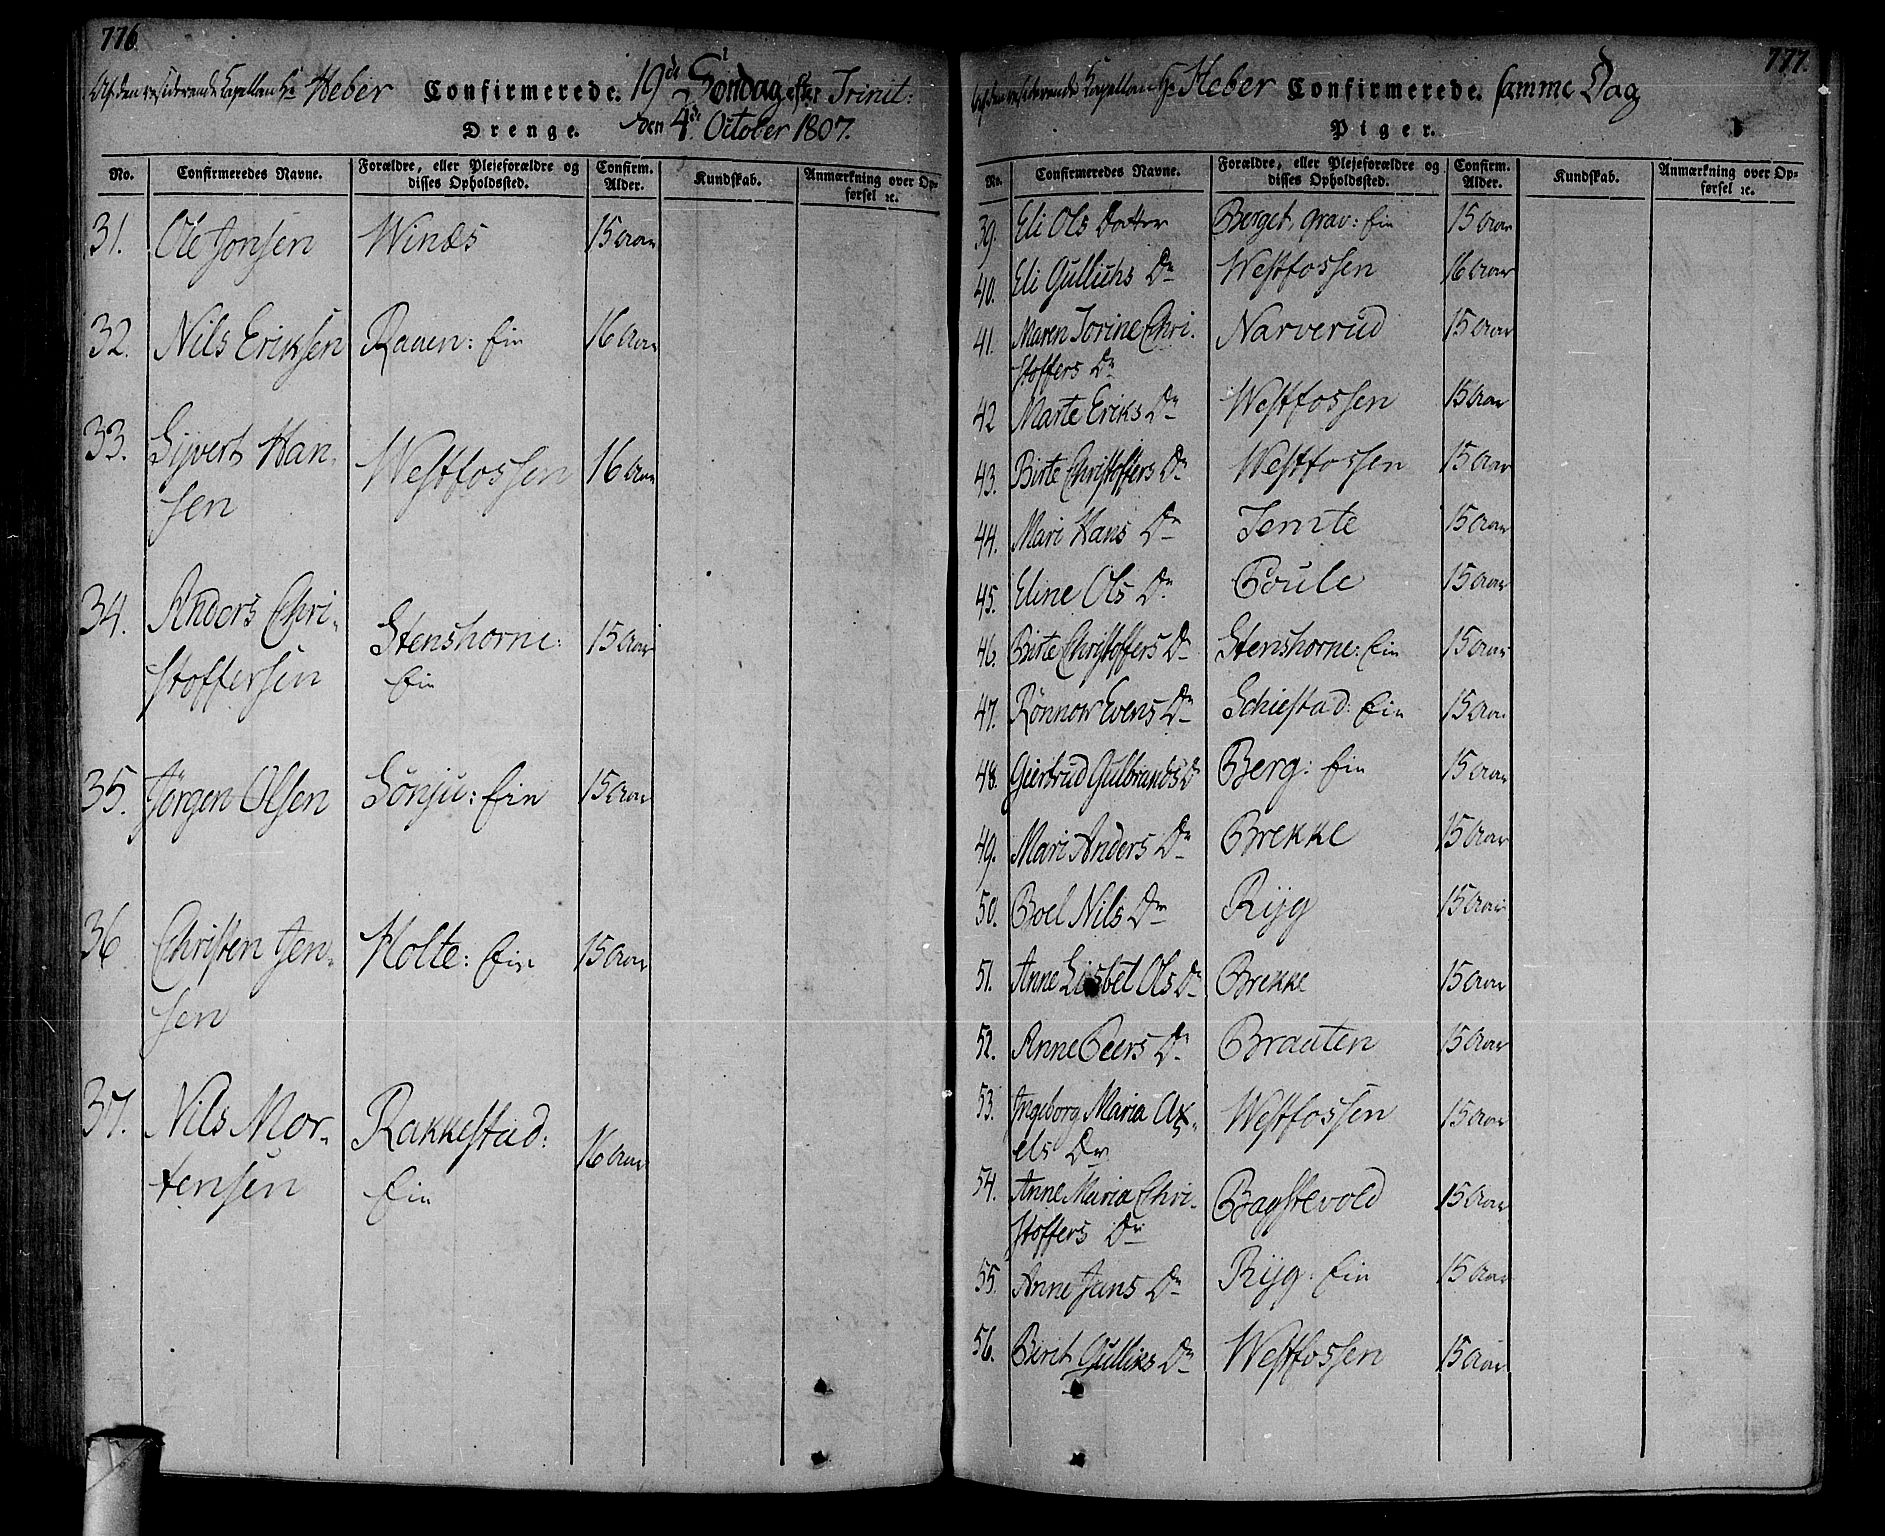 776.
Af den residerende Capellan Hr Heber Confirmerede. 19de Söndag efter Trinit:
Drenge. den 4de October 1807.
No. Confirmeredes Navne. Forældre, eller Plejeforældre og disses Opholdssted. Confirm. Alder. Kundskab. Anmærkning over Opførsel ꝛc.
31. Ole Jonsen Winæs 15 Aar
32. Nils Eriksen Raaen: Ein 16 Aar
33. Sÿvert Han-
sen Westfossen 16 Aar
34. Anders Chri-
stoffersen Stenshorne: Ein 15 Aar
35. Jörgen Olsen Sönju: Ein 15 Aar
36 Christen Jen-
sen Holte: Ein 15 Aar
37. Nils Mor-
tensen Rakkestad: Ein 16 Aar
777.
Af den residerende Capellan Hr Heber Confirmerede. samme Dag
Piger.
No. Confirmeredes Navne. Forældre, eller Plejeforældre og disses Opholdssted. Confirm. Alder. Kundskab. Anmærkning over Opførsel ꝛc.
39. Eli Ols Datter Berget, grav: Ein 15 Aar
40. Eli Gullichs Dr Westfossen 16 Aar
41. Maren Torine Chri-
stoffers Dr Narverud 15 Aar
42 Marte Eriks Dr Westfossen 15 Aar
43. Birte Christoffers Dr Westfossen 15 Aar
44. Mari Hans Dr Temte 15 Aar
45. Eline Ols Dr Foule 15 Aar
46. Birte Christoffers Dr Stenshorne: Ein 15 Aar
47. Rönnow Evens Dr Schiestad: Ein 15 Aar
48. Geertrud Gulbrands D Berg: Ein 15 Aar
49. Mari Anders Dr Brekke 15 Aar
50. Boel Nils Dr Rÿg 15 Aar
51. Anne Lisbet Ols Dr Brekke 15 Aar
52. Anne Peers Dr Brauten 15 Aar
53. Ingeborg Maria Ax-
els Dr Westfossen 15 Aar
54. Anne Maria Chri-
stoffers Dr Bagstevold 15 Aar
55. Anne Jans Dr Rÿg: Ein 15 Aar
56. Berit Gulliks Dr Westfossen 15 Aar